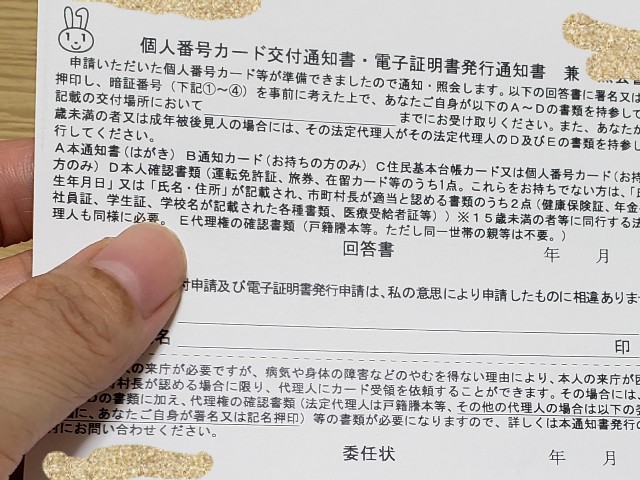 個人番号カード交付通知書・電子証明書発行通知書 兼 照会書
申請いただいた個人番号カード等が準備できましたので通知・照会します。以下の回答書に署名又は
押印し、暗証番号(下記①~④)を事前に考えた上で、あなたご自身が以下のA~Dの書類を持参し
記載の交付場所において までにお受け取りください。また、あなたが
歳未満の者又は成年被後見人の場合には、その法定代理人がその法定代理人のD及びEの書類を持参し
行してください。
A本通知書(はがき) B通知カード(お持ちの方のみ) C住民基本台帳カード又は個人番号カード(お持
方のみ) D本人確認書類(運転免許証、旅券、在留カード等のうち1点。これらをお持ちでない方は、「氏
生年月日」又は「氏名・住所」が記載され、市町村長が適当と認める書類のうち2点(健康保険証、年金
社員証、学生証、学校名が記載された各種書類、医療受給者証等))※15歳未満の者等に同行する法
理人も同様に必要。 E代理権の確認書類(戸籍謄本等。ただし同一世帯の親等は不要。)
回答書 年 月
付申請及び電子証明書発行申請は、私の意思により申請したものに相違あり
名 印
人の来庁が必要ですが、病気や身体の障害などのやむを得ない理由により、本人の来庁が
村長が認める場合に限り、代理人にカード受領を依頼することができます。その場合には、
Dの書類に加え、代理権の確認書類(法定代理人は戸籍謄本等、その他の代理人の場合は以下の委
に、あなたご自身が署名又は記名押印)等の書類が必要になりますので、詳しくは本通知書発行
にお問い合わせください。
委任状 年 月